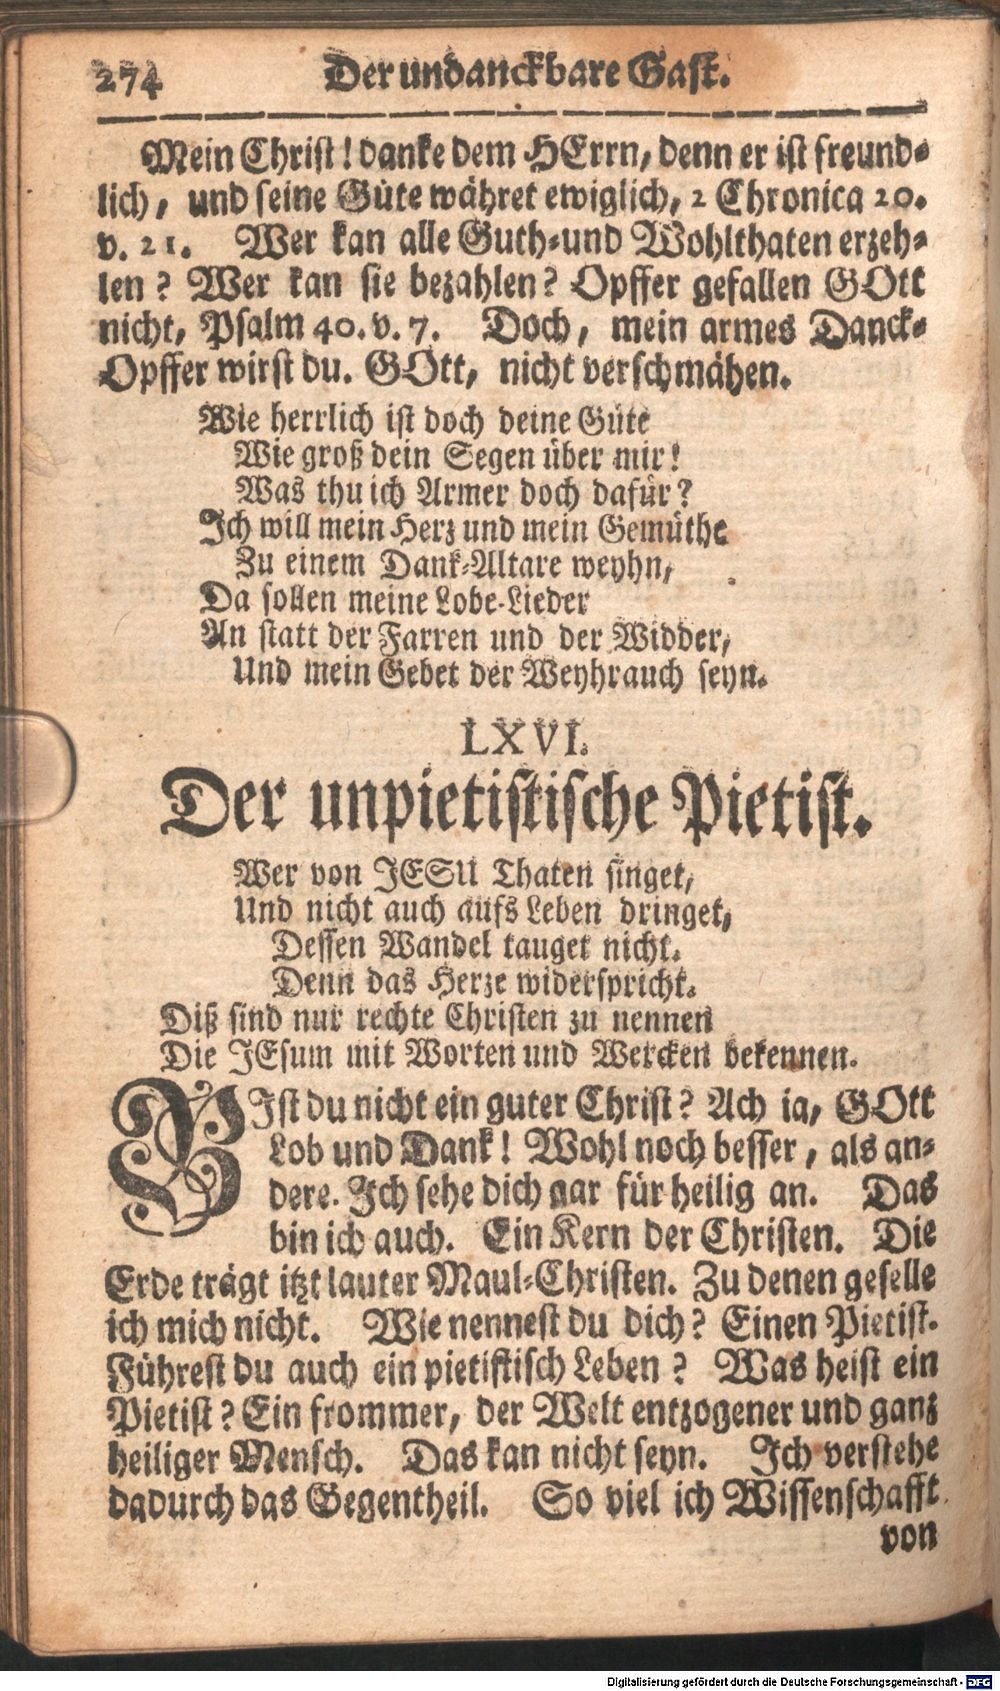 274 Der undanckbare Gast.
Mein Christ! danke dem HErrn, denn er ist freund-
lich, und seine Güte währet ewiglich, 2 Chronica 20.
v. 21. Wer kan alle Guth-und Wohlthaten erzeh-
len? Wer kan sie bezahlen? Opffer gefallen GOtt
nicht, Psalm 40. v. 7. Doch, mein armes Danck-
Opffer wirst du. GOtt, nicht verschmähen.
Wie herrlich ist doch deine Güte
Wie groß dein Segen über mir!
Was thu ich Armer doch dafür?
Ich will mein Herz und mein Gemüthe
Zu einem Dank-Altare weyhn,
Da sollen meine Lobe-Lieder
An statt der Farren und der Widder,
Und mein Gebet der Weyhrauch seyn.
LXVI.
Der unpietistische Pietist.
Wer von JESU Thaten singet,
Und nicht auch aufs Leben dringet,
Dessen Wandel tauget nicht.
Denn das Herze widerspricht.
Diß sind nur rechte Christen zu nennen
Die JEsum mit Worten und Wercken bekennen.
BIst du nicht ein guter Christ? Ach ia, GOtt
Lob und Dank! Wohl noch besser, als an-
dere. Ich sehe dich gar für heilig an. Das
bin ich auch. Ein Kern der Christen. Die
Erde trägt itzt lauter Maul-Christen. Zu denen geselle
ich mich nicht. Wie nennest du dich? Einen Pietist.
Führest du auch ein pietistisch Leben? Was heist ein
Pietist? Ein frommer, der Welt entzogener und ganz
heiliger Mensch. Das kan nicht seyn. Ich verstehe
dadurch das Gegentheil. So viel ich Wissenschafft
von
Digitalisierung gefördert durch die Deutsche Forschungsgemeinschaft - DFG